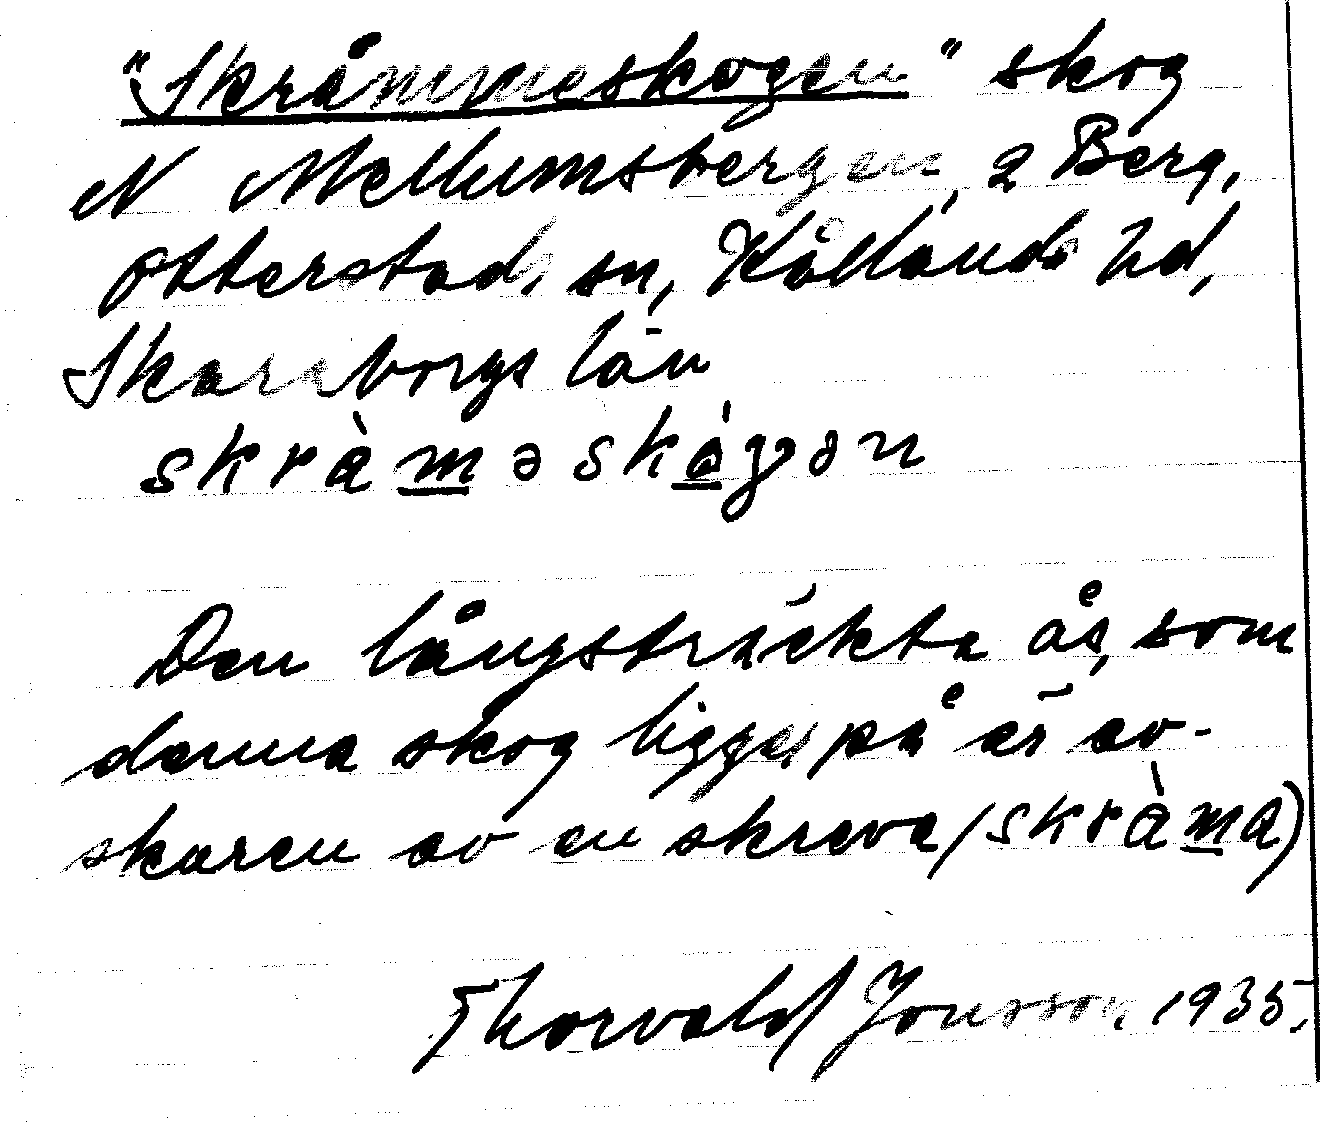 "Skråmmeskogen" skog
N Mellumsbergen, 2 Berg,
Otterstads sn, Kållands hd,
Skaraborgs län
skràməskógən
Den långsträckta ås, som
denna skog ligger på är av-
skuren av en skreva (skràma)
Thorvald Jonsson. 1935.